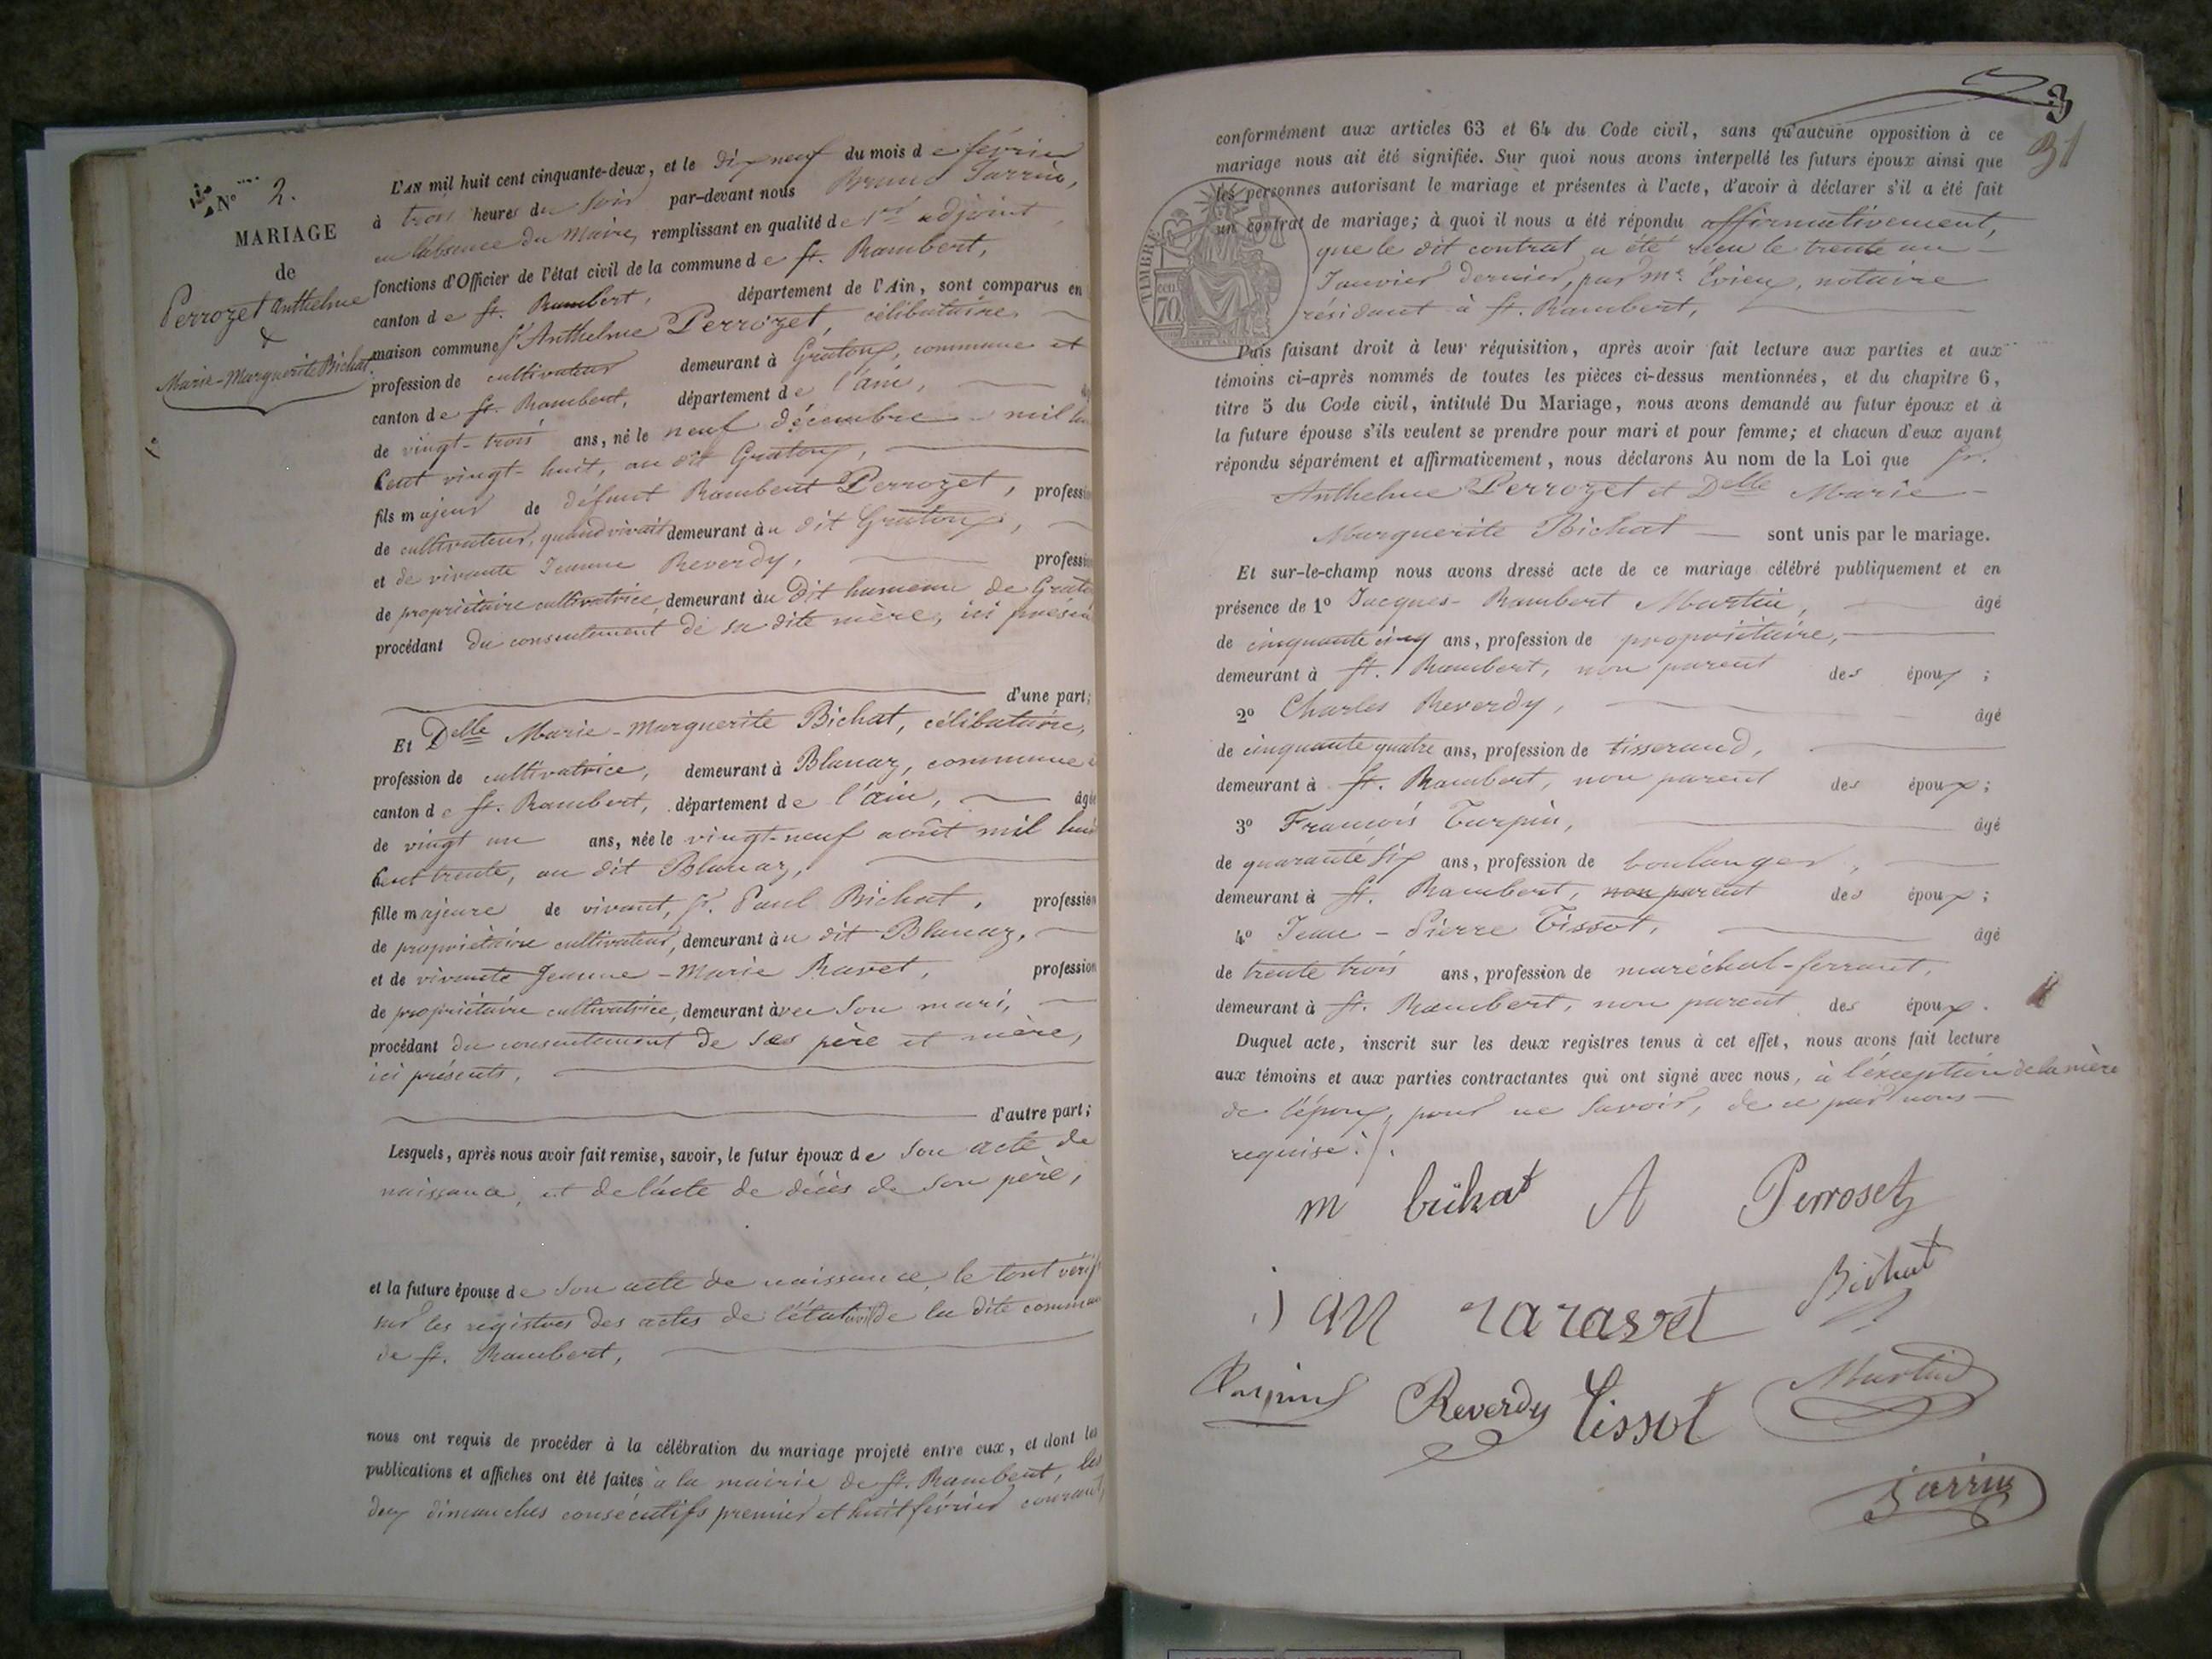 N° 2.
MARIAGE
de
Perrozet Anthelme
&
Marie-Marguerite Bichat.
L'AN mil huit cent cinquante-deux, et le dix neuf du mois de février
à trois heures du soir par-devant nous Bruno Jarrin,
en l'absence du Maire, remplissant en qualité de 1er adjoint,
fonctions d'Officier de l'état civil de la commune de St. Rambert,
canton de St. Rambert, département de l'Ain, sont comparus en
maison commune Sr Anthelme Perrozet, célibataire
profession de cultivateur demeurant à Gratoux, commune et
canton de St. Rambert, département de l'ain,
de vingt-trois ans, né le neuf décembre mil
cent vingt-huit, au dit Gratoux,
fils majeur de défunt Rambert Perrozet, profession
de cultivateur, quand vivait demeurant au dit Gratoux,
et de vivante Jeanne Reverdy, profession
de propriétaire cultivatrice, demeurant au dit hameau de
procédant du consentement de sa dite mère, ici
d'une part;
Et Delle Marie-Marguerite Bichat, célibataire,
profession de cultivatrice, demeurant à Blanaz, commune
canton de St. Rambert, département de l'ain, âgée
de vingt un ans, née le vingt-neuf août mil huit
cent trente, au dit Blanaz,
fille majeure de vivant, Sr. Paul Bichat, profession
de propriétaire cultivateur, demeurant au dit Blanaz,
et de vivante Jeanne-Marie Ravet, profession
de propriétaire cultivatrice, demeurant avec son mari,
procédant du consentement de ses père et mère,
ici présents,
d'autre part;
Lesquels, après nous avoir fait remise, savoir, le futur époux de son acte de
naissance, et de l'acte de décès de son père,
et la future épouse de son acte de naissance, le tout
sur les registres des actes de l'état civil de la dite
de St. Rambert,
nous ont requis de procéder à la célébration du mariage projeté entre eux, et dont les
publications et affiches ont été faites à la mairie de St. Rambert, les
deux dimanches consécutifs premier et huit février courant,
3
31
conformément aux articles 63 et 64 du Code civil, sans qu'aucune opposition à ce
mariage nous ait été signifiée. Sur quoi nous avons interpellé les futurs époux ainsi que
les personnes autorisant le mariage et présentes à l'acte, d'avoir à déclarer s'il a été fait
un contrat de mariage; à quoi il nous a été répondu affirmativement,
que le dit contrat a été reçu le trente un
Janvier dernier, par Me notaire
résidant à St. Rambert,
TIMBRE
70
Puis faisant droit à leur réquisition, après avoir fait lecture aux parties et aux
témoins ci-après nommés de toutes les pièces ci-dessus mentionnées, et du chapitre 6,
titre 5 du Code civil, intitulé Du Mariage, nous avons demandé au futur époux et à
la future épouse s'ils veulent se prendre pour mari et pour femme; et chacun d'eux ayant
répondu séparément et affirmativement, nous déclarons Au nom de la Loi que Sr.
Anthelme Perrozet et Delle Marie-
Marguerite Bichat sont unis par le mariage.
Et sur-le-champ nous avons dressé acte de ce mariage célébré publiquement et en
présence de 1° Jacques-Rambert Martin, âgé
de cinquante cinq ans, profession de propriétaire,
demeurant à St. Rambert, non parent des époux;
2° Charles Reverdy, âgé
de cinquante quatre ans, profession de tisserand,
demeurant à St. Rambert, non parent des époux;
3° François Turpin, âgé
de quarante six ans, profession de boulanger,
demeurant à St. Rambert, non parent des époux;
4° Jean-Pierre Tissot, âgé
de trente trois ans, profession de maréchal-ferrant,
demeurant à St. Rambert, non parent des époux.
Duquel acte, inscrit sur les deux registres tenus à cet effet, nous avons fait lecture
aux témoins et aux parties contractantes qui ont signé avec nous, à l'exception de la mère
de l'époux, pour ne savoir, de ce par nous
requise./.
m bichat A Perroset
Bichat
Reverdy Tissot Martin
Jarrin